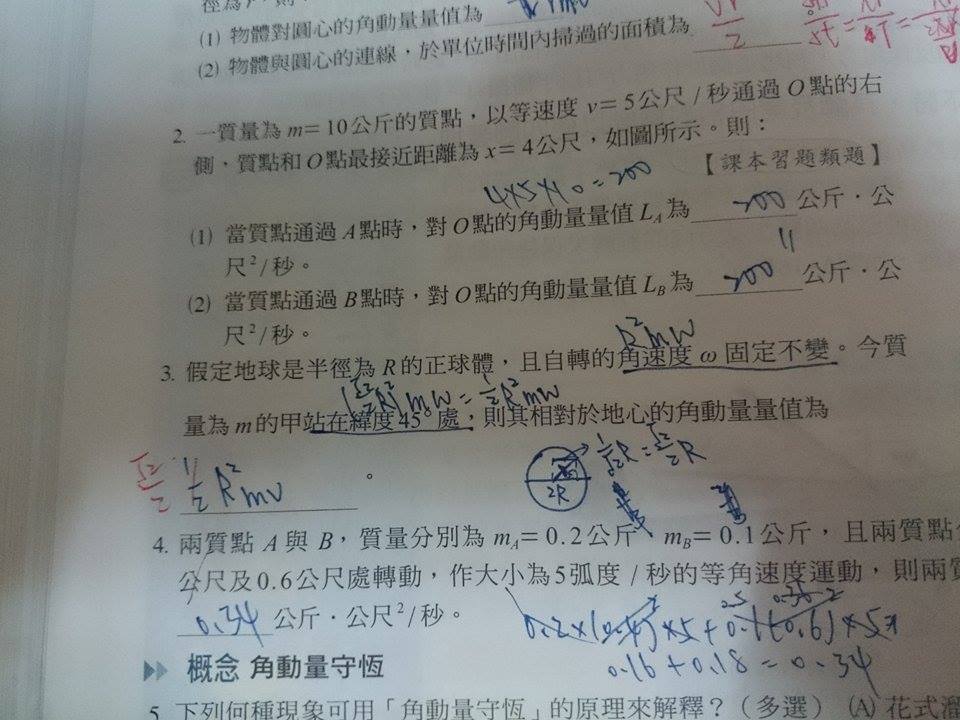 (1) 物體對圓心的角動量量值為
(2) 物體與圓心的連線，於單位時間內掃過的面積為
2. 一質量為 m= 10公斤的質點，以等速度 v= 5公尺 / 秒通過 O點的右
側，質點和O點最接近距離為 x= 4公尺，如圖所示。則：
【課本習題類題】
4×5×10=200
(1) 當質點通過 A點時，對 O點的角動量量值 LA為 200 公斤．公
尺²/秒。
(2) 當質點通過 B點時，對 O點的角動量量值 LB為 200 公斤．公
尺²/秒。
R²mw
3. 假定地球是半徑為 R的正球體，且自轉的角速度 ω 固定不變。今質
(√2/2 R)²mw = 1/2 R²mw
量為 m的甲站在緯度45°處，則其相對於地心的角動量量值為
1/√2 R = √2/2 R
√2/2 1/2 R²mv 。
2R
4. 兩質點 A 與 B，質量分別為 mA= 0.2公斤、mB= 0.1公斤，且兩質點
公尺及0.6公尺處轉動，作大小為5弧度 / 秒的等角速度運動，則兩質
0.34 公斤．公尺²/秒。
0.2×(0.4)²×5+0.1(0.6)²×5
0.16+0.18=0.34
概念 角動量守恆
5. 下列何種現象可用「角動量守恆」的原理來解釋？（多選） (A) 花式溜